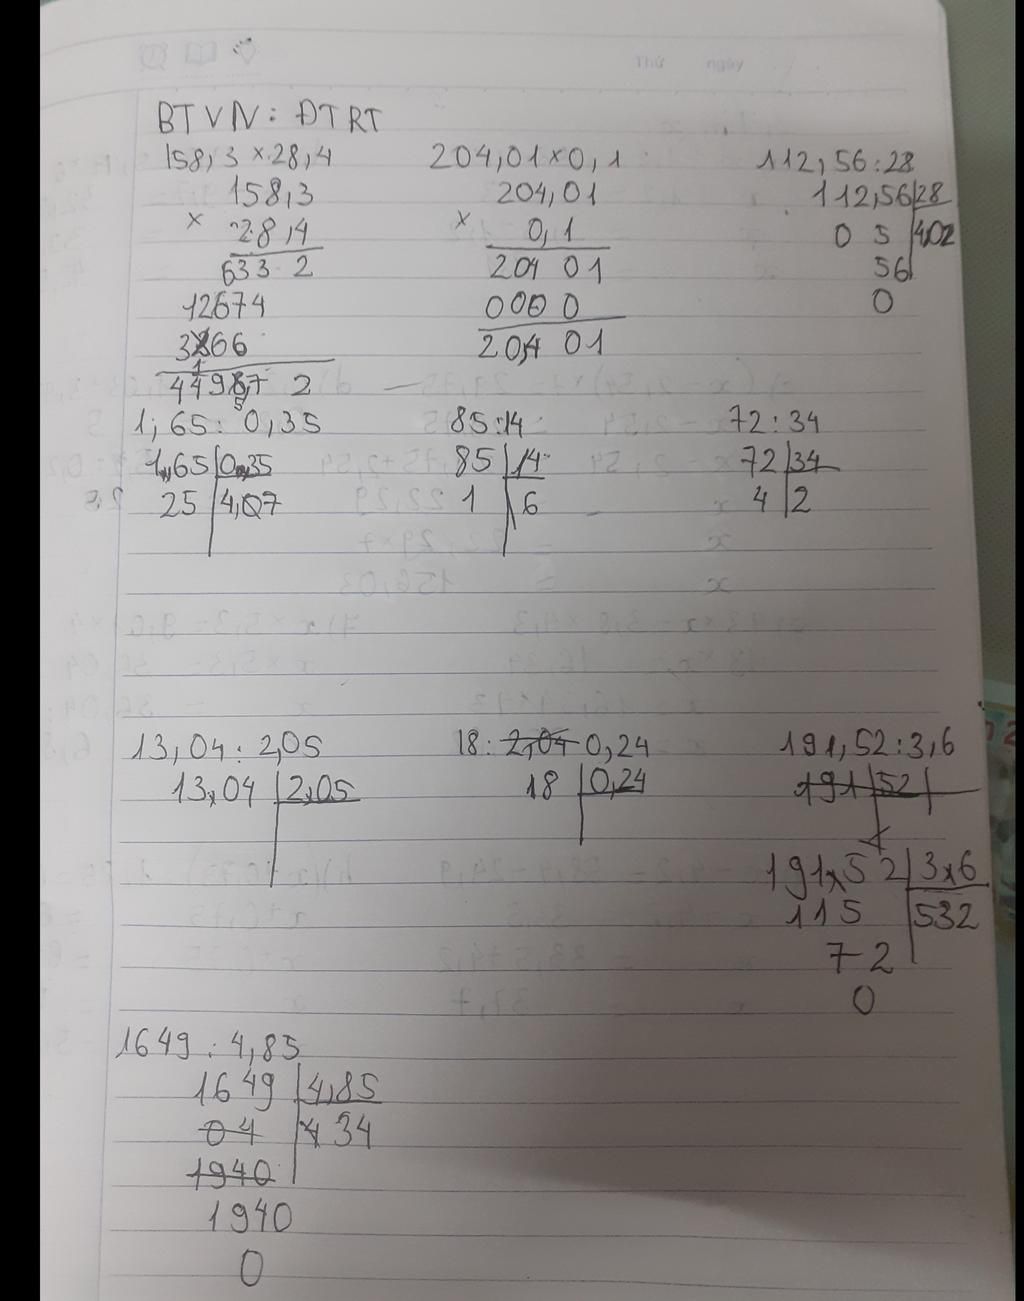 Thứ ngày
BTVN: ĐTRT
158,3 × 28,4 204,01 × 0,1 112,56 : 28
158,3 204,01 112,56 28
× 28,4 × 0,1 0 5 4,02
633 2 204 01 56
12674 0000 0 0
3266 20,4 01
44987 2
1,65 : 0,35 85 : 14 72 : 34
1,65 0,35 85 14 72 34
25 4,07 1 6 4 2
13,04 : 2,05 18 : 2,04 0,24 191,52 : 3,6
13,04 2,05 18 0,24 191 52
191,52 3,6
115 532
72
0
1649 : 4,85
1649 4,85
04 4 34
1940
1940
0